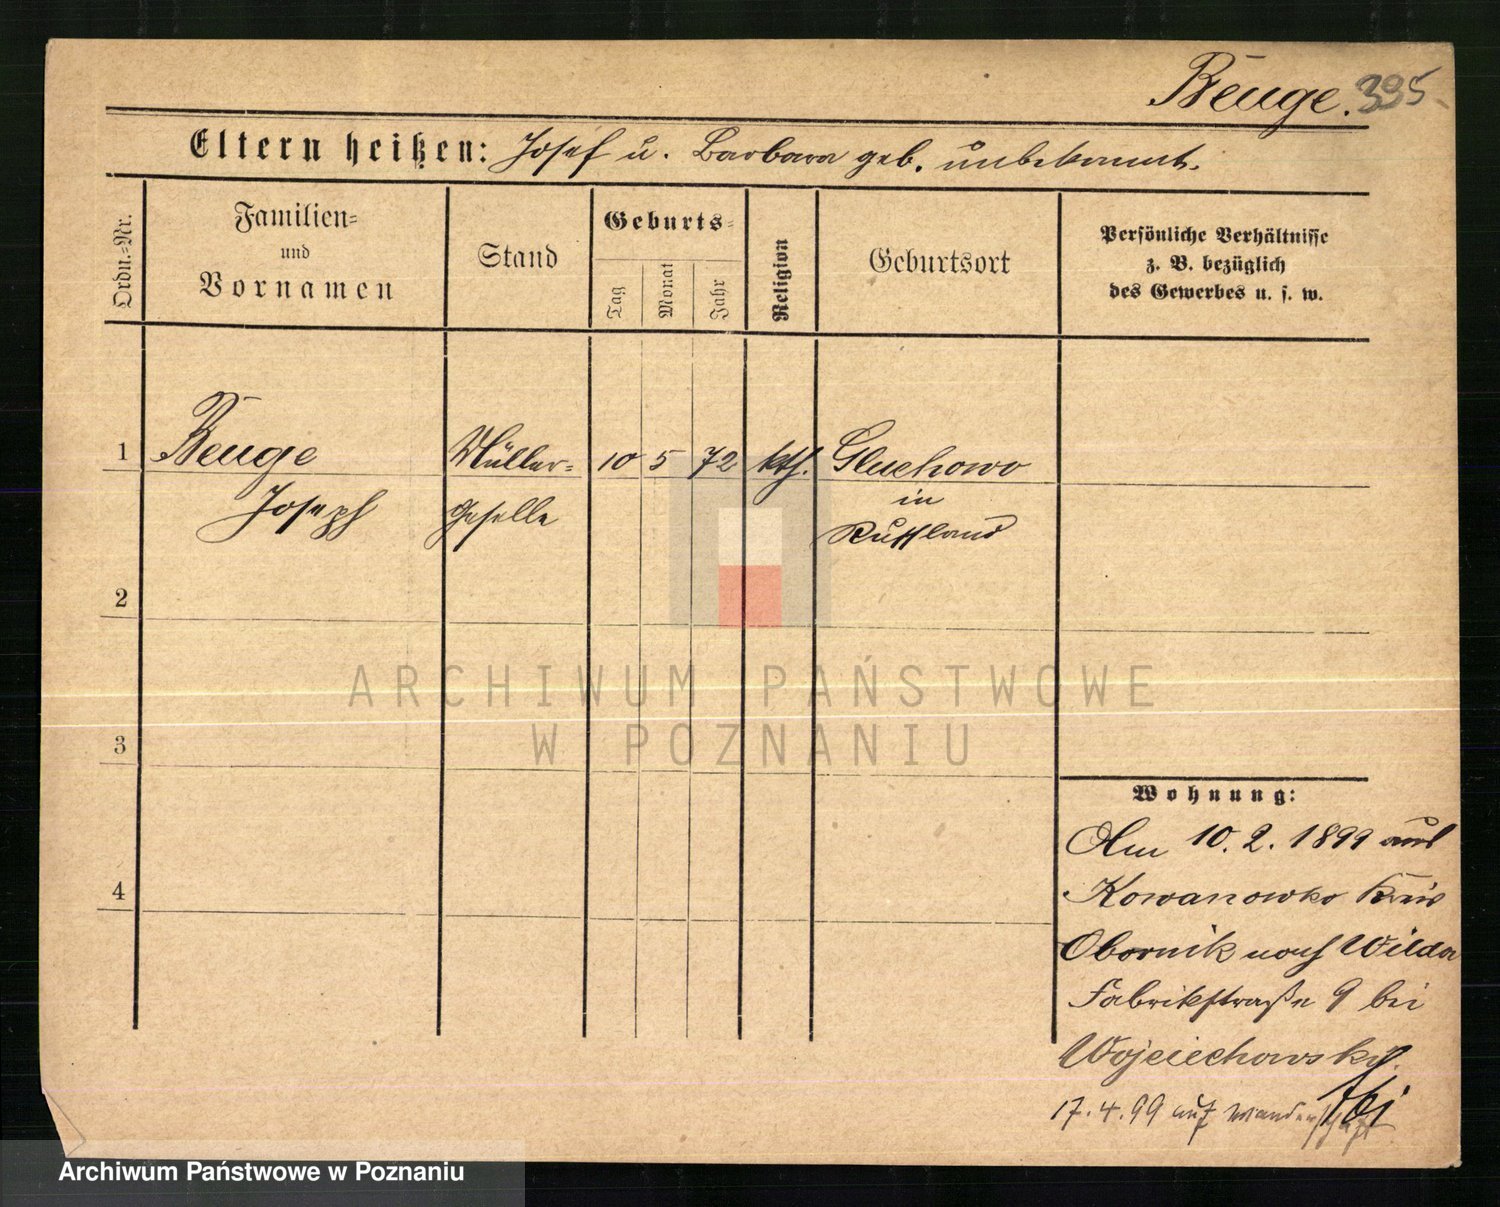 Beuge. 395
Eltern heißen: Josef u. Barbara geb. unbekannt.
Ordn.-Nr.
Familien-
und
Vornamen
Stand
Geburts-
Tag
Monat
Jahr
Religion
Geburtsort
Persönliche Verhältnisse
z. B. bezüglich
des Gewerbes u. s. w.
1 Beuge Müller- 10 5 72 kth. Gluchowo
Joseph Geselle in
Russland
2
3
4
Wohnung:
Am 10. 2. 1899 aus
Kowanowko Kreis
Obornik nach Wilda
Fabrikstraße 9 bei
Wojciechowski.
17. 4. 99 auf Wanderschaft
ARCHIWUM PAŃSTWOWE
W POZNANIU
Archiwum Państwowe w Poznaniu